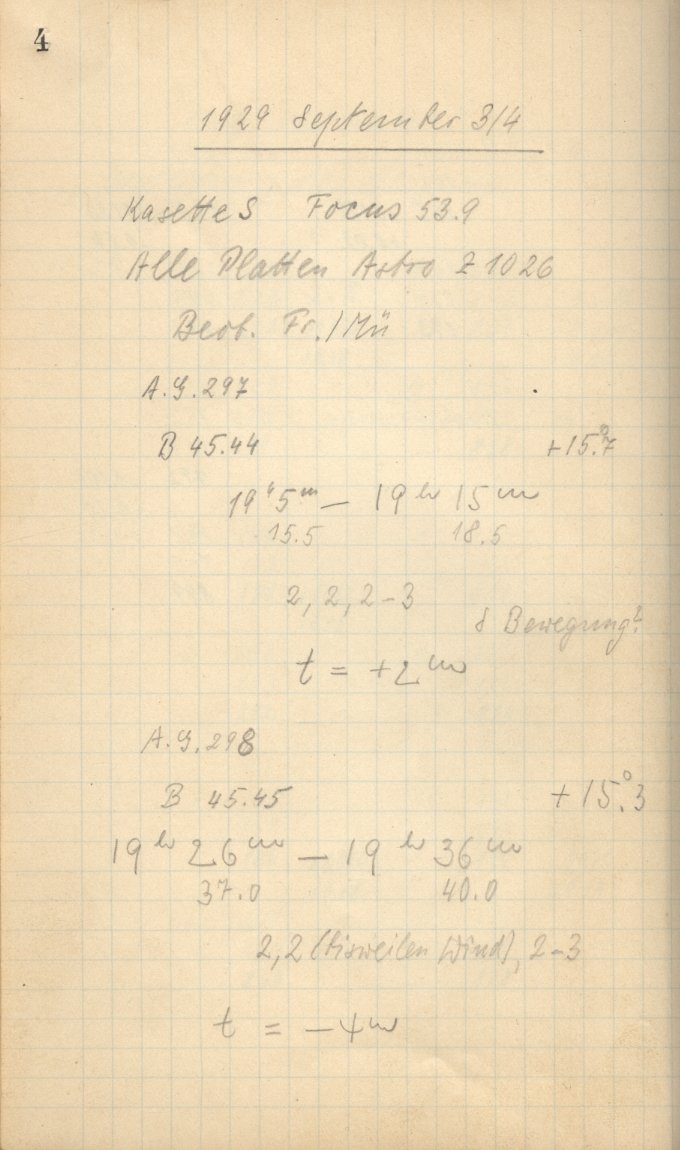 4
1929 September 3/4
Kasette S Focus 53.9
Alle Platten Astro Z 1026
Beob. Fr./Mü
A.G. 297
B 45.44 +15.°7
19ʰ 5ᵐ – 19ʰ 15ᵐ
15.5 18.5
2, 2, 2–3
δ Bewegung?
t = +2ᵐ
A.G. 298
B 45.45 +15.°3
19ʰ 26ᵐ – 19ʰ 36ᵐ
37.0 40.0
2, 2 (bisweilen Wind), 2–3
t = –4ᵐ